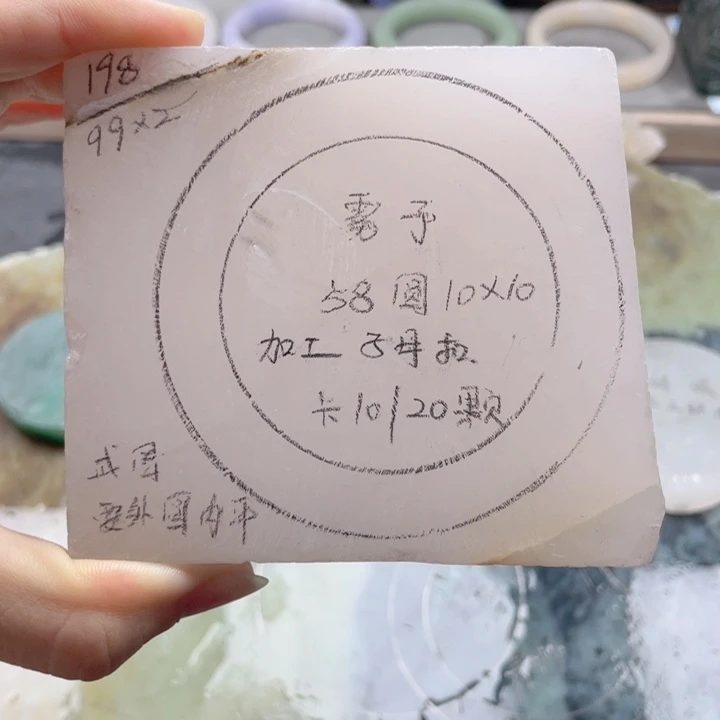 198
99×2
雩子
58圆10×10
加工子母扣
卡10/20颗
或圆
要外圆内平